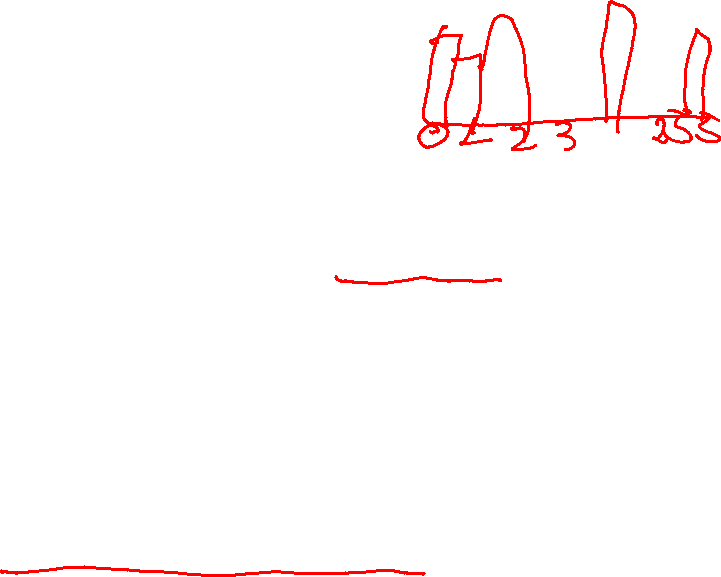 0 1 2 3 255